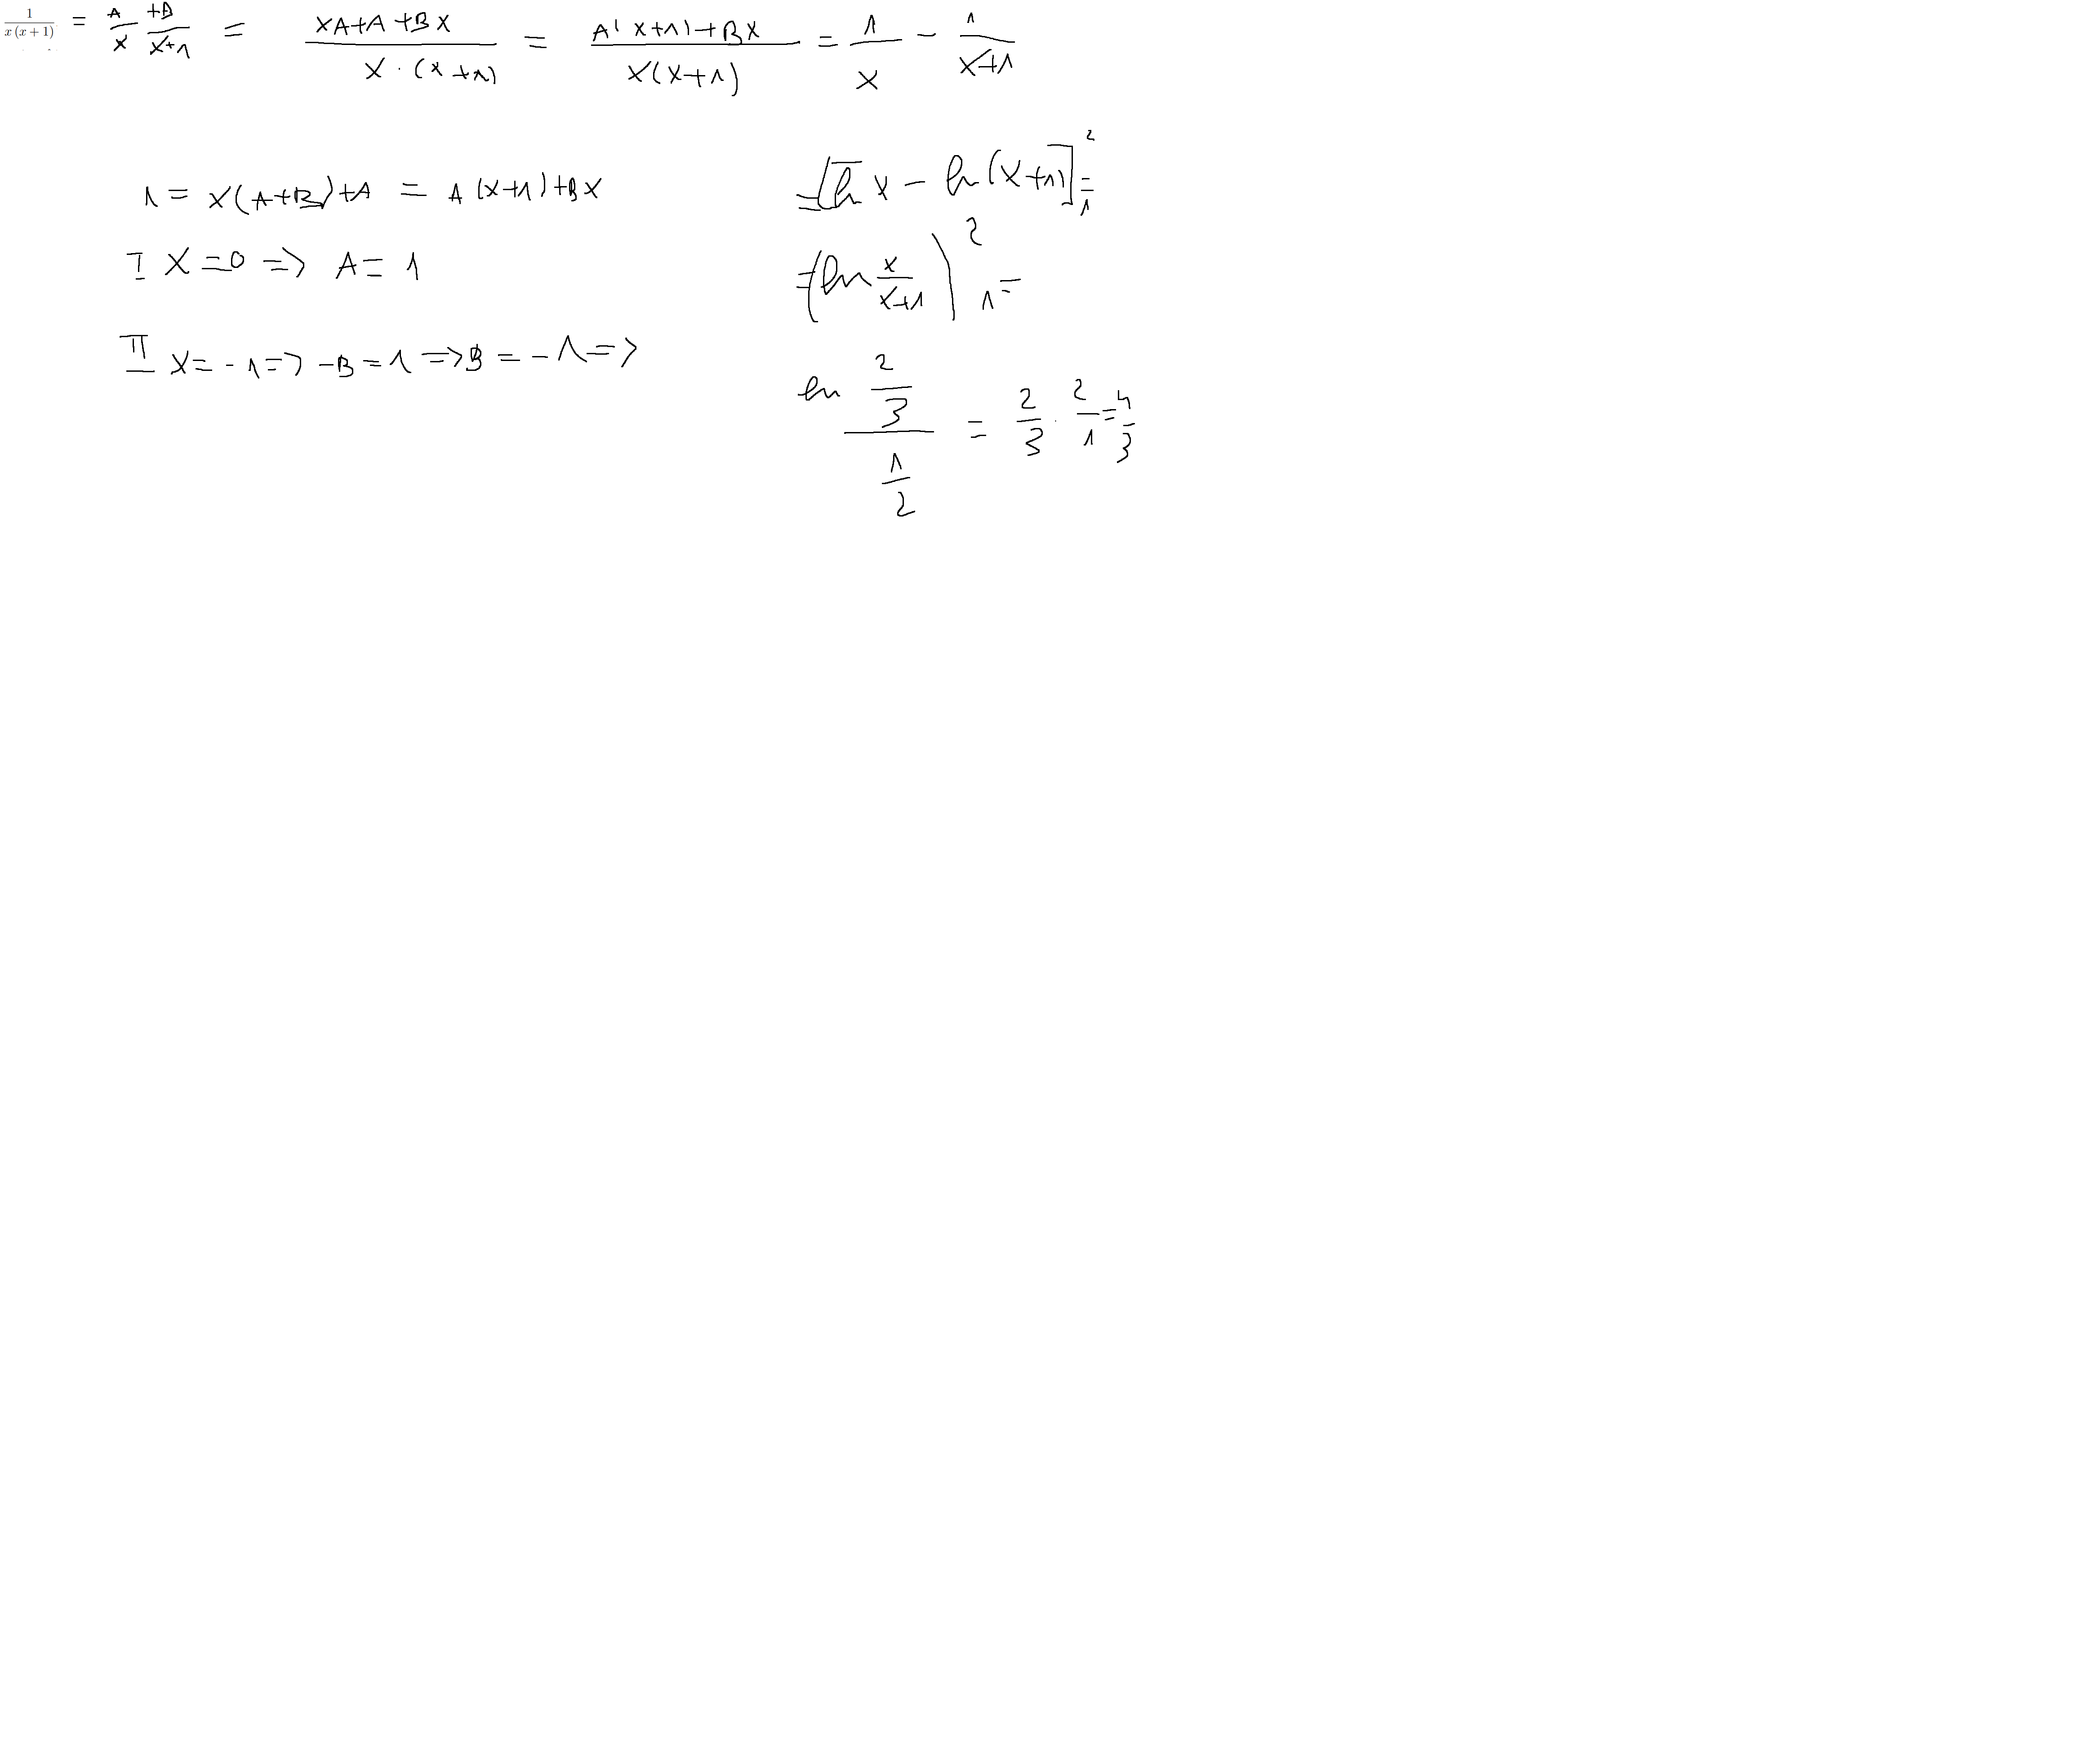 1/(x(x+1)) = A/x +B/(x+1) = (xA+A+Bx)/(x·(x+1)) = (A(x+1)+Bx)/(x(x+1)) = 1/x − 1/(x+1)
1 = x(A+B)+A = A(x+1)+Bx
I x=0 => A=1
II x=-1=> -B=1 => B=-1 =>
=[ln x − ln(x+1)]₁² =
=(ln x/(x+1))₁² =
ln (2/3)/(1/2) = 2/3 · 2/1 = 4/3